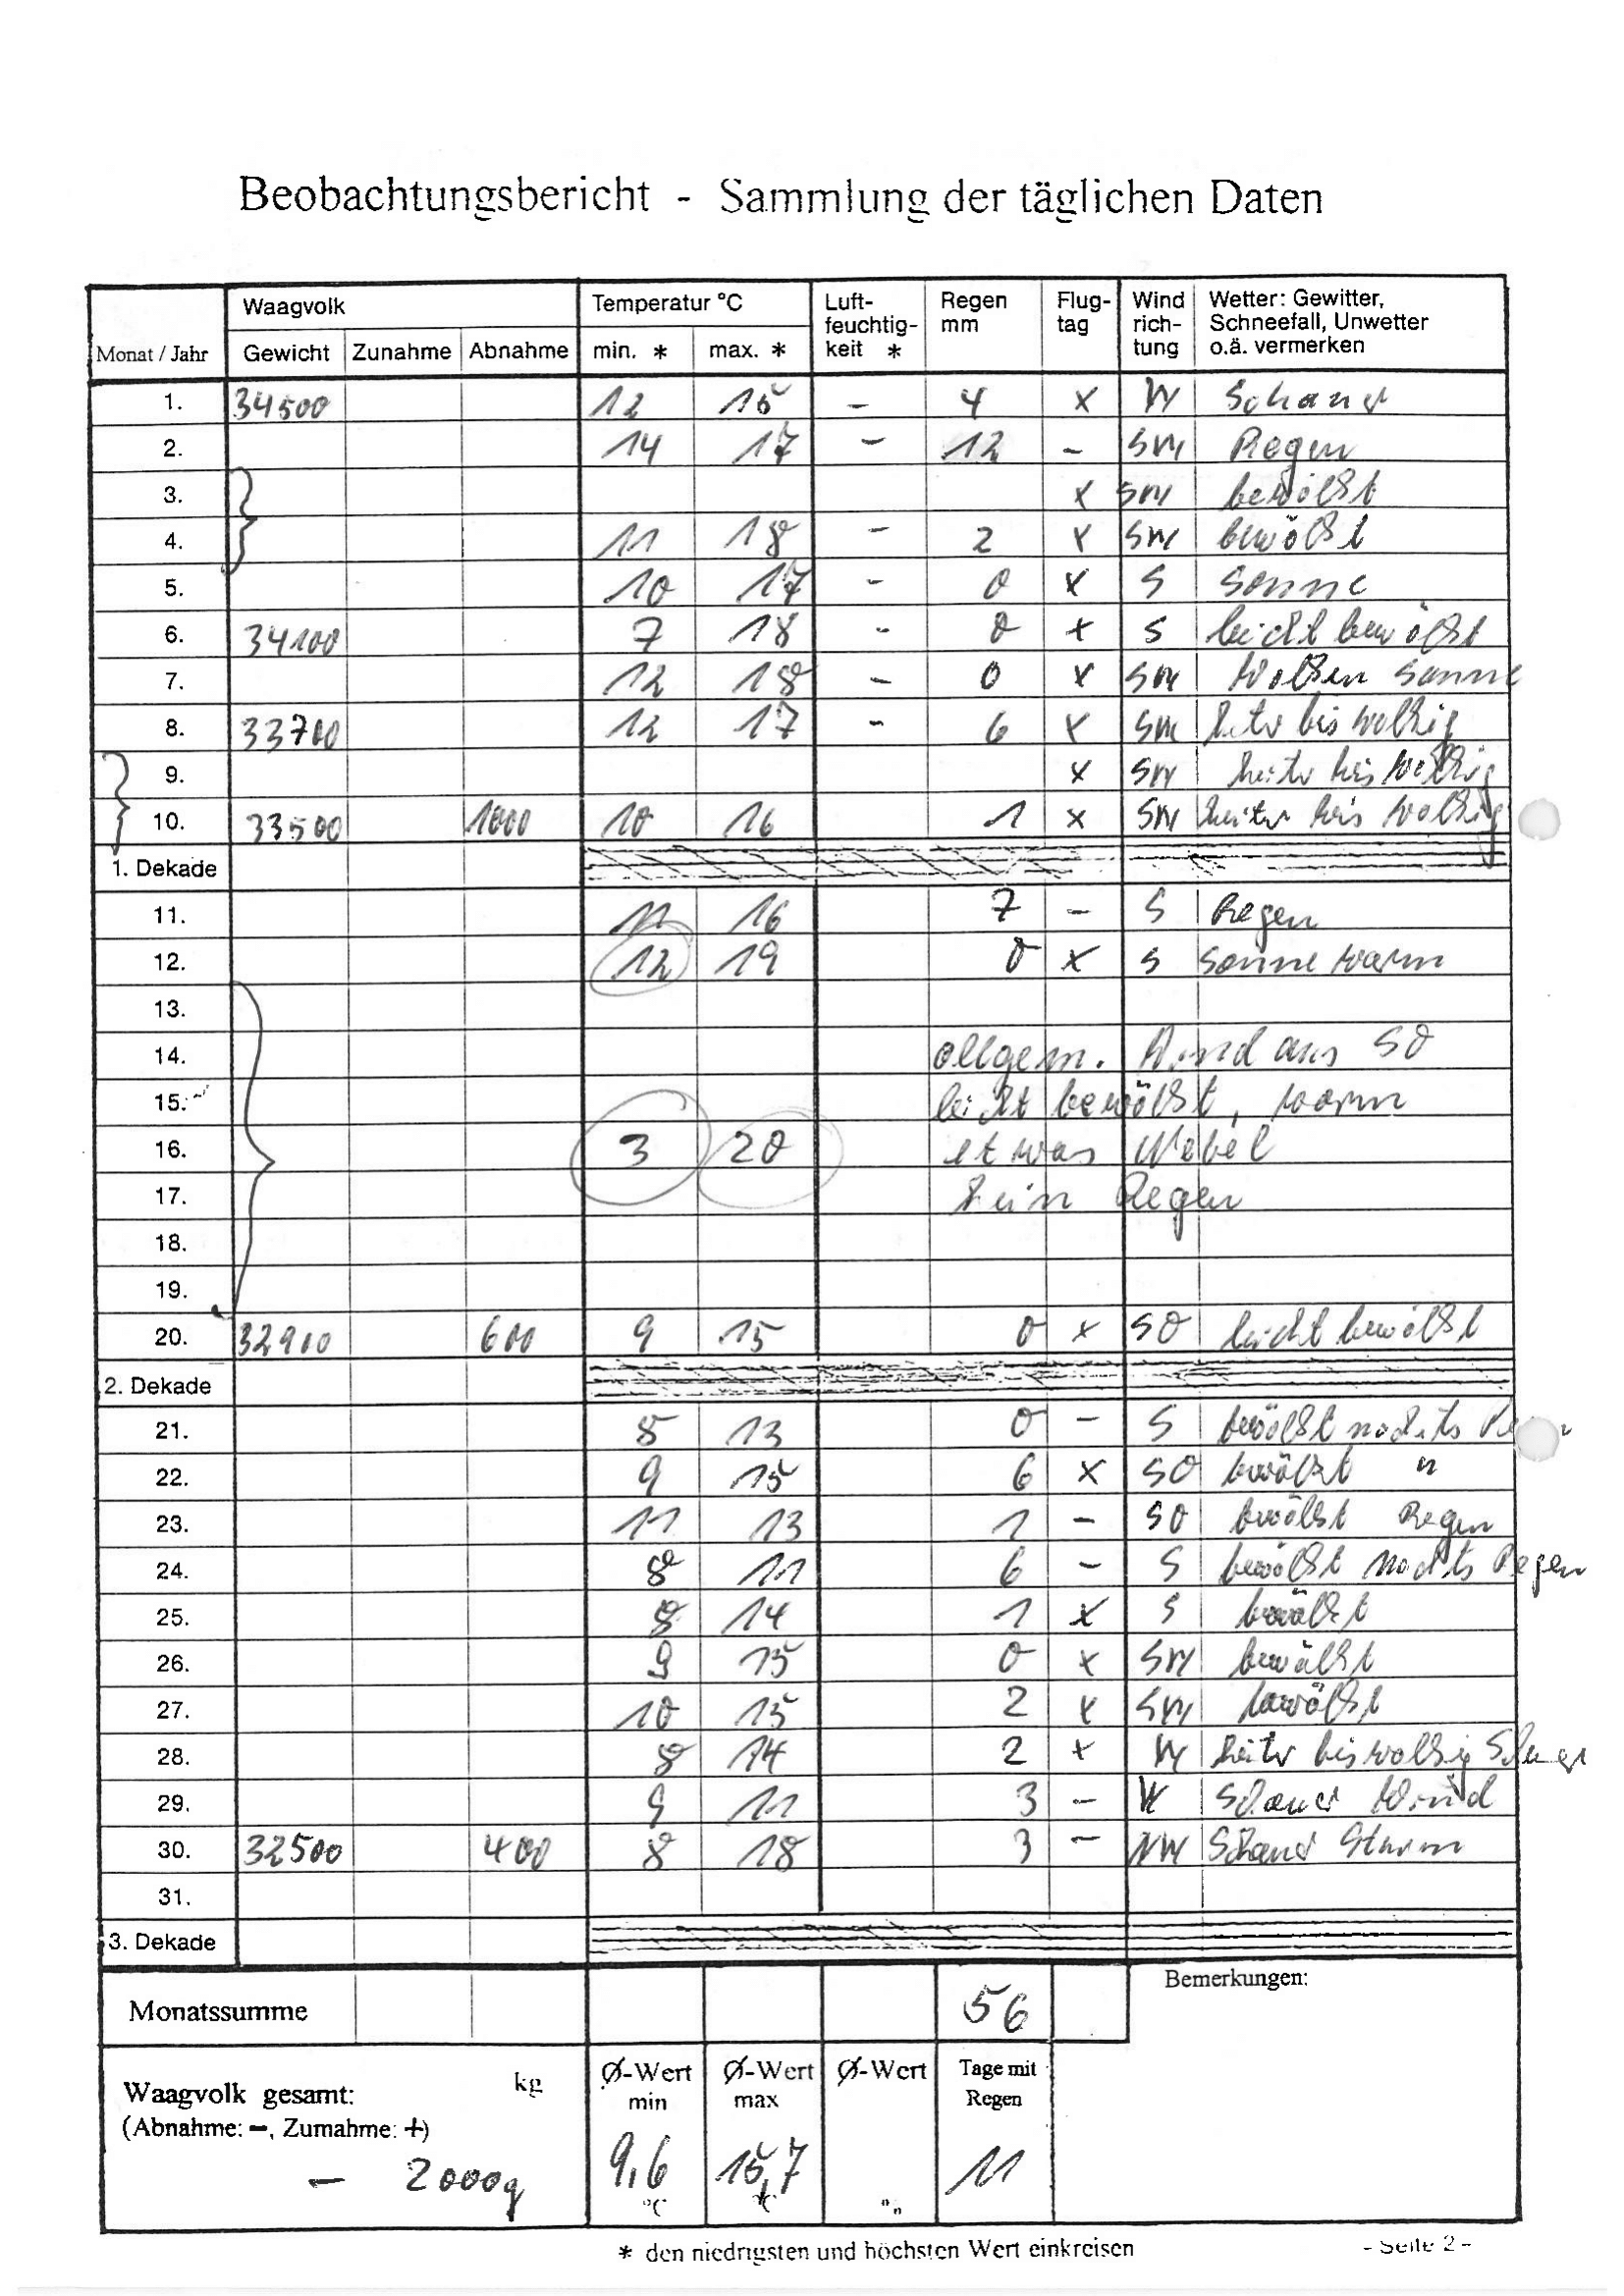 Beobachtungsbericht - Sammlung der täglichen Daten
Monat / Jahr Waagvolk Temperatur °C Luft-feuchtig-keit * Regen mm Flug-tag Wind rich-tung Wetter: Gewitter, Schneefall, Unwetter o.ä. vermerken
Gewicht Zunahme Abnahme min. * max. *
1. 34500 12 15 - 4 x W Schauer
2. 14 17 - 12 - SW Regen
3. x SW bewölkt
4. 11 18 - 2 x SW bewölkt
5. 10 17 - 0 x S Sonne
6. 34100 7 18 - 0 x S leicht bewölkt
7. 12 18 - 0 x SW Wolken Sonne
8. 33700 12 17 - 6 x SW heiter bis wolkig
9. x SW heiter bis wolkig
10. 33500 1000 10 16 1 x SW heiter bis wolkig
1. Dekade
11. 11 16 7 - S Regen
12. 12 19 0 x S Sonne warm
13.
14. allgem. Wind aus SO
15. leicht bewölkt, warm
16. 3 20 etwas Nebel
17. kein Regen
18.
19.
20. 32900 600 9 15 0 x SO leicht bewölkt
2. Dekade
21. 8 13 0 - S bewölkt nachts
22. 9 15 6 x SO bewölkt "
23. 11 13 1 - SO bewölkt Regen
24. 8 11 6 - S bewölkt nachts Regen
25. 8 14 1 x S bewölkt
26. 9 15 0 x SW bewölkt
27. 10 15 2 x SW bewölkt
28. 8 14 2 x W heiter bis wolkig Schauer
29. 9 11 3 - W Schauer Wind
30. 32500 400 8 18 3 - NW Schauer Sturm
31.
3. Dekade
Monatssumme 56 Bemerkungen:
Waagvolk gesamt: kg Ø-Wert min Ø-Wert max Ø-Wert Tage mit Regen
(Abnahme: -, Zumahme: +)
- 2000g 9,6 °C 15,7 °C 11
* den niedrigsten und höchsten Wert einkreisen - Seite 2 -